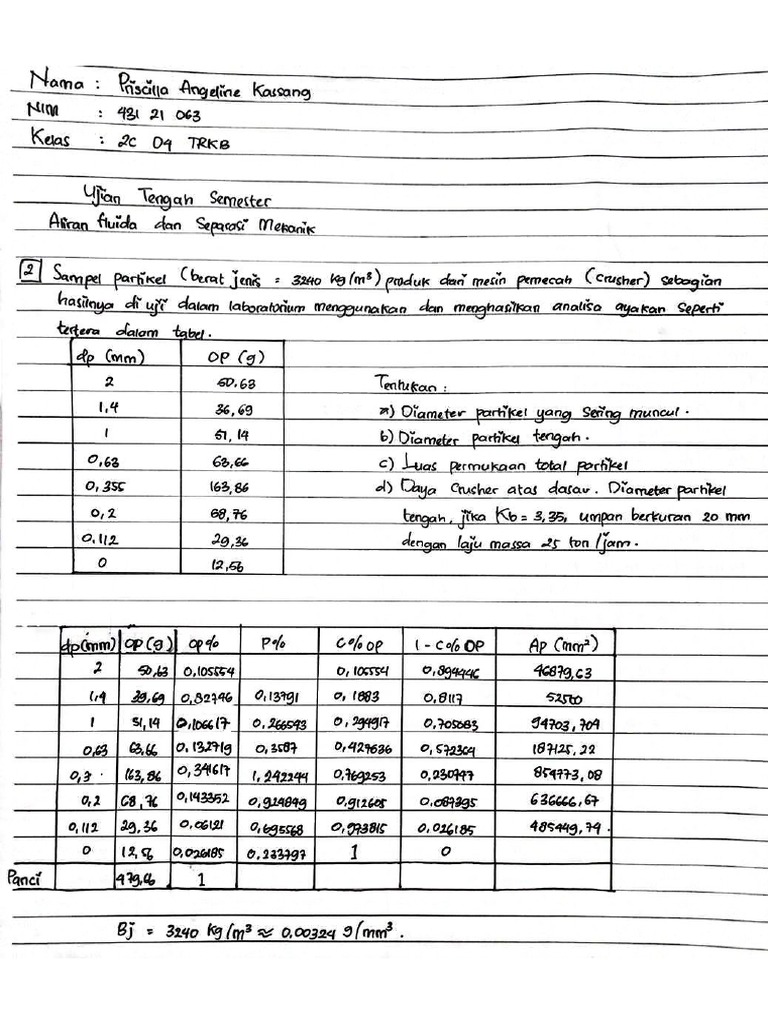 Nama : Priscilla Angeline Kassang
NIM : 431 21 063
Kelas : 2C D4 TRKB
Ujian Tengah Semester
Aliran fluida dan Separasi Mekanik
2 Sampel partikel (berat jenis = 3240 kg/m³) produk dari mesin pemecah (crusher) sebagian
hasilnya di uji dalam laboratorium menggunakan dan menghasilkan analisa ayakan seperti
tertera dalam tabel.
dp (mm) OP (g)
2 50,63
1,4 36,69
1 51,14
0,63 63,66
0,355 163,86
0,2 68,76
0,112 29,36
0 12,56
Tentukan :
a) Diameter partikel yang sering muncul.
b) Diameter partikel tengah.
c) Luas permukaan total partikel
d) Daya Crusher atas dasar. Diameter partikel
tengah, jika Kb = 3,35, umpan berkuran 20 mm
dengan laju massa 25 ton/jam.
dp(mm) OP(g) OP% P% C% OP 1 - C% OP Ap (mm²)
2 50,63 0,105554 0,105554 0,894446 46879,63
1,4 39,69 0,82746 0,13791 0,1883 0,8117 52500
1 51,14 0,106617 0,266543 0,294917 0,705083 94703,704
0,63 63,66 0,132719 0,3587 0,427636 0,572364 187125,22
0,3 163,86 0,341617 1,242244 0,769253 0,230747 854773,08
0,2 68,76 0,143352 0,924849 0,912605 0,087395 636666,67
0,112 29,36 0,06121 0,695568 0,973815 0,026185 485449,74
0 12,56 0,026185 0,233797 1 0
Panci 479,66 1
Bj = 3240 kg/m³ ≈ 0,00324 g/mm³.